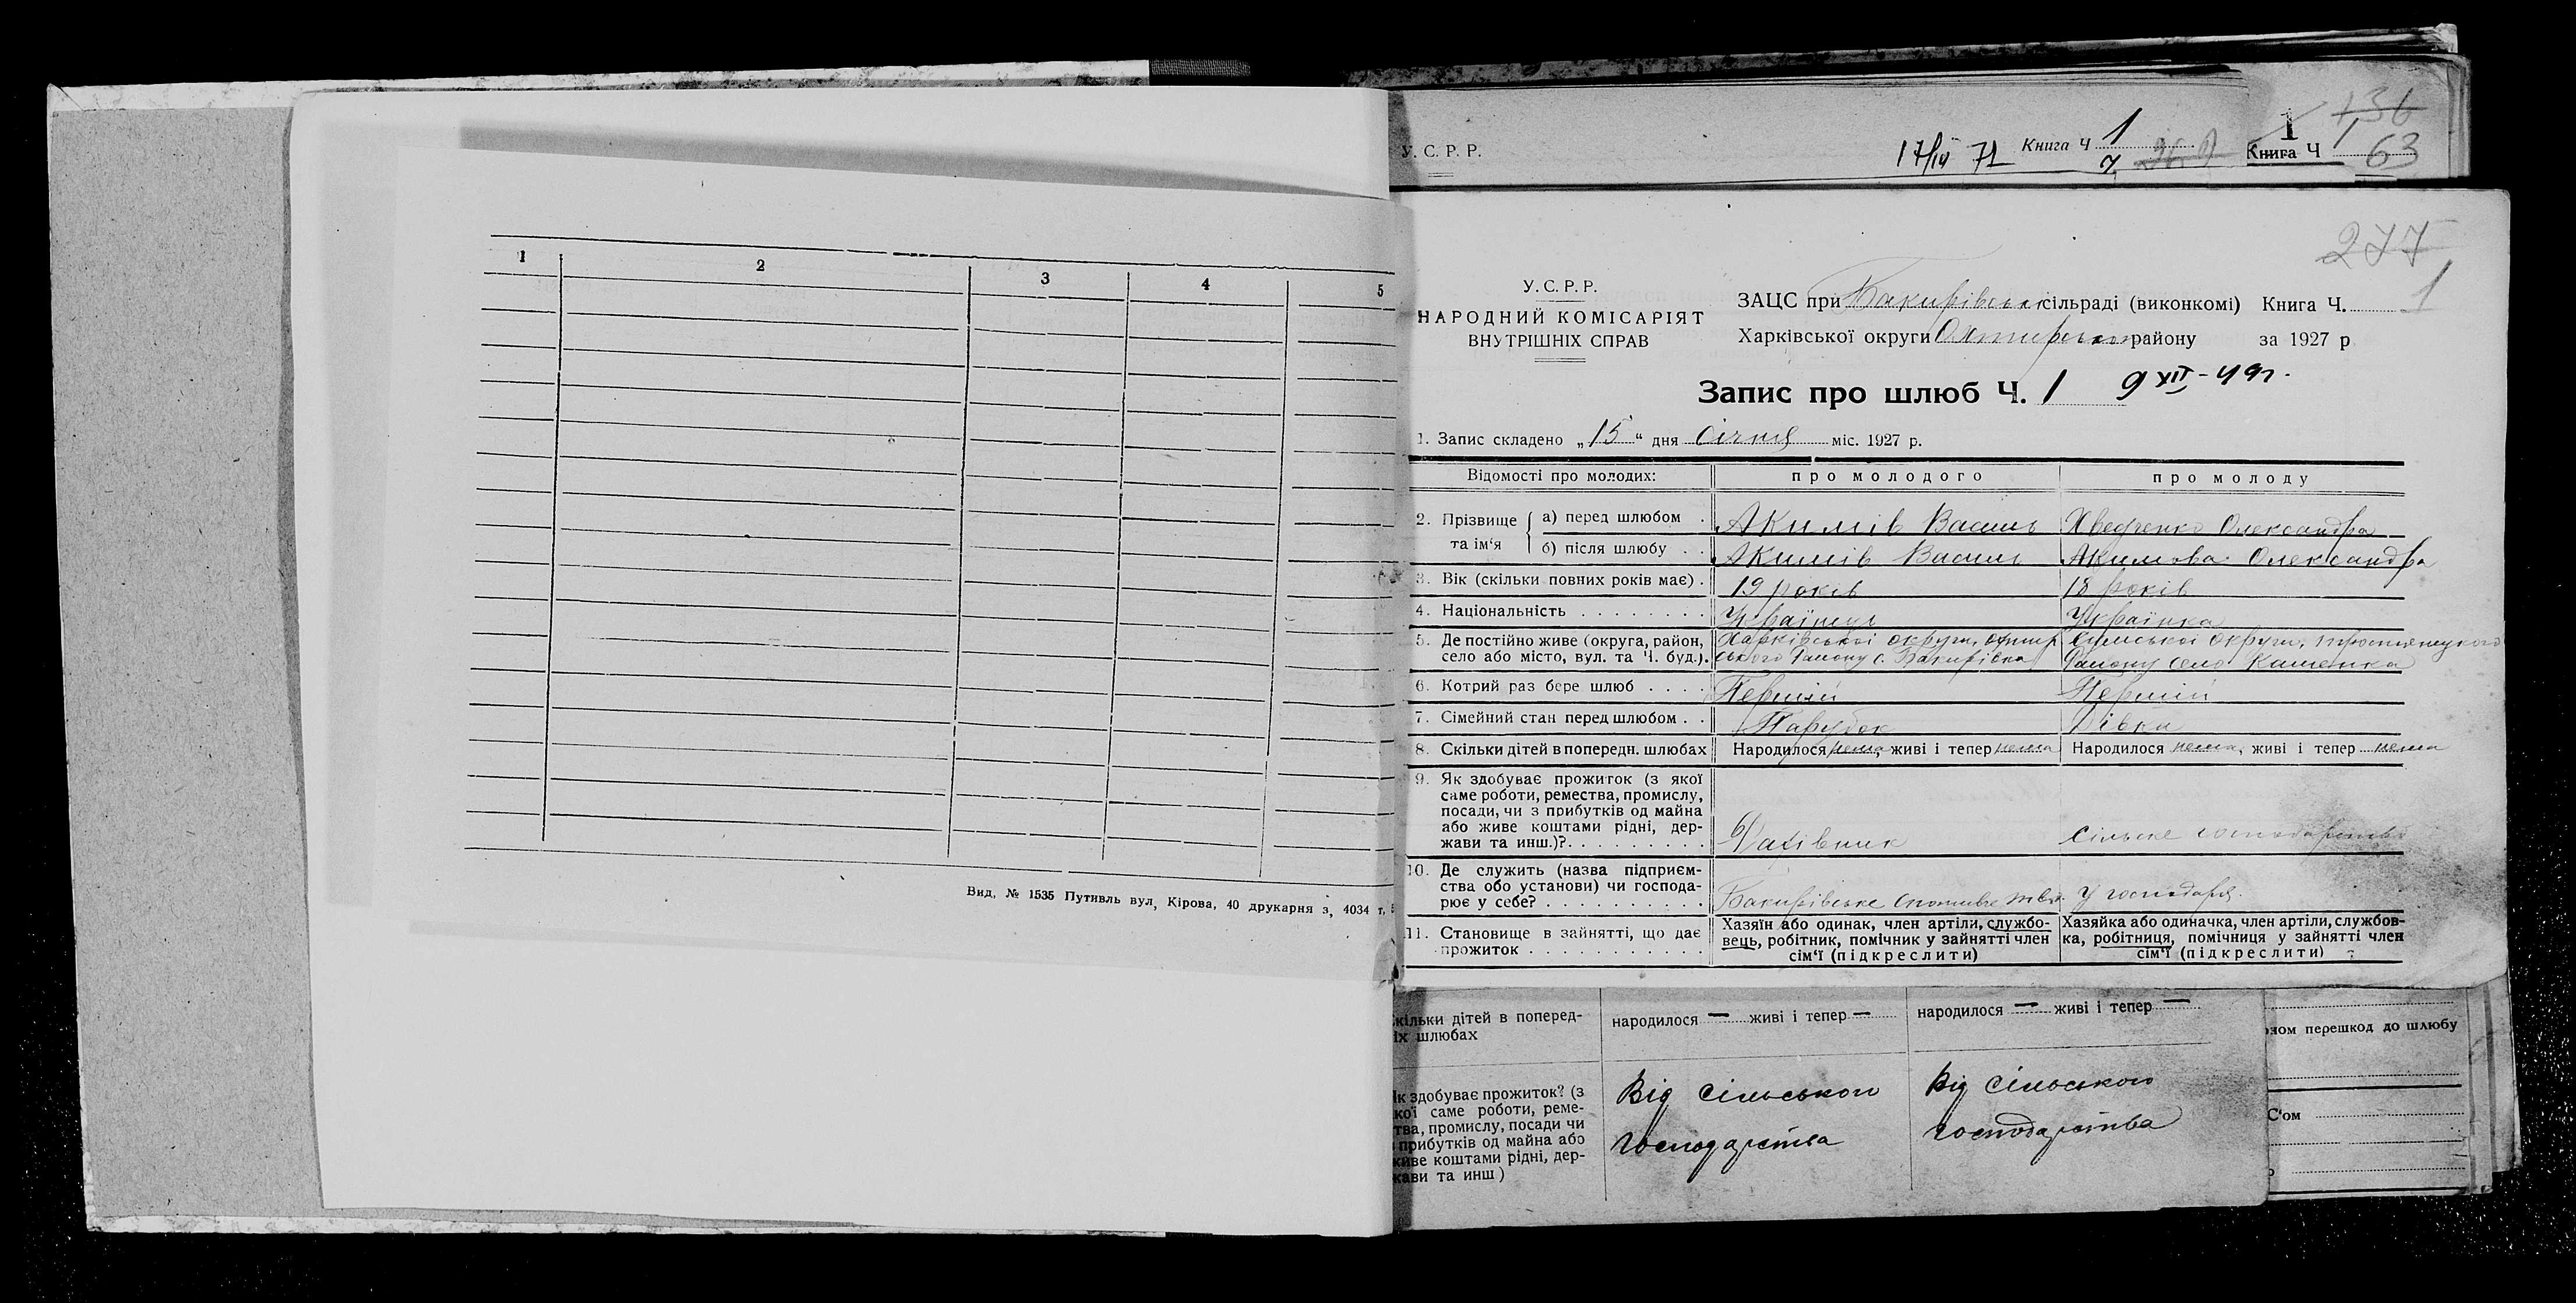 1 2 3 4 5
Вид, № 1535 Путивль вул, Кірова, 40 друкарня з, 4034 т,
У. С. Р. Р.
17/IV 71 Книга Ч 1
1 136
Книга Ч 63
277
У. С. Р. Р.
НАРОДНИЙ КОМІСАРІЯТ
ВНУТРІШНІХ СПРАВ
ЗАЦС при Бакирівськ сільраді (виконкомі) Книга Ч. 1
Харківської округи Охтирськ району за 1927 р
Запис про шлюб Ч. 1 9 XII - 49г.
1. Запис складено „15“ дня січня міс. 1927 р.
Відомості про молодих: про молодого про молоду
2. Прізвище та ім‘я
а) перед шлюбом . Акимів Василь Хведченко Олександра
б) після шлюбу . . Акимів Василь Акимова Олександра
3. Вік (скільки повних років має) . 19 років 18 років
4. Національність . . . . . . . . Українець Українка
5. Де постійно живе (округа, район, Харківської округи, охтир Сумської округи, тростянецкого
село або місто, вул. та Ч. буд.). ського Району с. Бакирівка Району село Каменка
6. Котрий раз бере шлюб . . . . Перший Перший
7. Сімейний стан перед шлюбом . . Парубок Дівка
8. Скільки дітей в попередн. шлюбах Народилося нема, живі і тепер нема Народилося нема, живі і тепер нема
9. Як здобуває прожиток (з якої
саме роботи, ремества, промислу,
посади, чи з прибутків од майна
або живе коштами рідні, дер-
жави та инш.)?. . . . . . . . . сільске господарство
10. Де служить (назва підприєм-
ства обо установи) чи господа-
рює у себе? . . . . . . . . . . Бакирівське у господаря.
11. Становище в зайнятті, що дає
прожиток . . . . . . . . . . . .
Хазяїн або одинак, член артіли, службо-
вець, робітник, помічник у зайнятті член
сім‘ї (підкреслити)
Хазяйка або одиначка, член артіли, службов-
ка, робітниця, помічниця у зайнятті член
сім‘ї (підкреслити)
кільки дітей в поперед-
іх шлюбах
народилося — живі і тепер —
народилося — живі і тепер —
ном перешкод до шлюбу
С‘ом
к здобуває прожиток? (з
кої саме роботи, реме-
тва, промислу, посади чи
прибутків од майна або
живе коштами рідні, дер-
жави та инш)
Від сільського
господарства
Від сільського
господарства